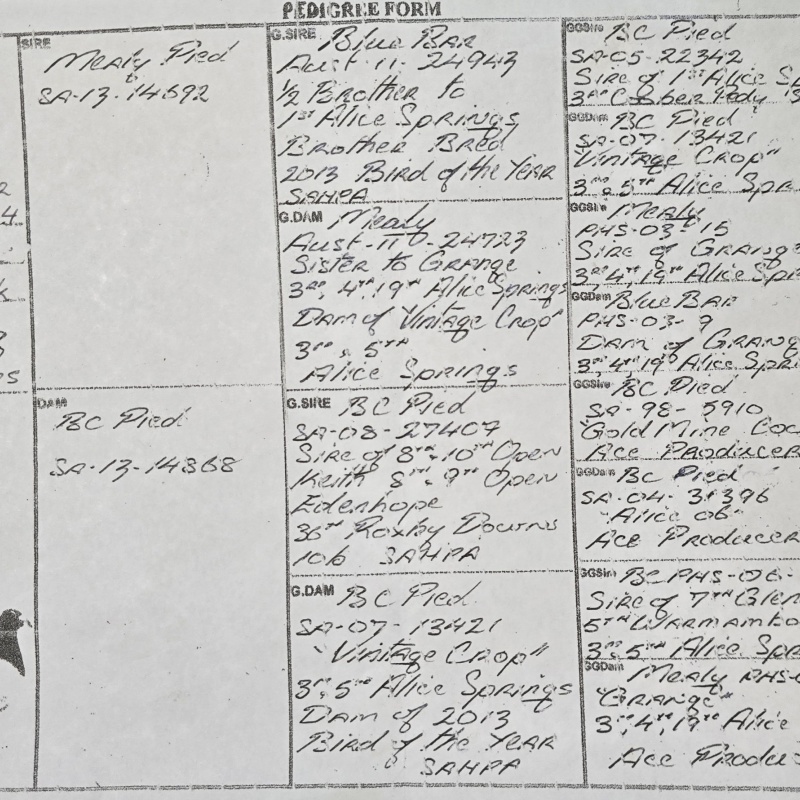 PEDIGREE FORM
SIRE
Mealy Pied
SA-13-14692
DAM
BC Pied
SA-13-14368
G.SIRE Blue BAR
Aust-11-24943
1/2 Brother to
1ST Alice Springs
Brother Bred
2013 Bird of the YEAR
SAHPA
G.DAM Mealy
Aust-11-24723
Sister to Grange
3RD, 4TH, 19TH Alice Springs
Dam of Vintage Crop"
3RD & 5TH
Alice Springs
G.SIRE BC Pied
SA-08-27407
Sire of 8TH, 10TH Open
Keith 8TH, 9TH Open
Edenhope
36TH Roxby Downs
106 SAHPA
G.DAM BC Pied
SA-07-13421
"Vintage Crop"
3RD, 5TH Alice Springs
Dam of 2013
Bird of the YEAR
SAHPA
GGSire BC Pied
SA-05-22342
Sire of 1ST Alice Sp
3RD Coober Pedy
GGDam BC Pied
SA-07-13421
"Vintage Crop"
3RD & 5TH Alice Spr
GGSire Mealy
PHS-03-15
Sire of Grange
3RD, 4TH, 19TH Alice Spr
GGDam Blue BAR
PHS-03-9
Dam of Grang
3RD, 4TH, 19TH Alice Spri
GGSire BC Pied
SA-98-5910
"Gold Mine Coc
Ace Producer
GGDam BC Pied
SA-04-31396
"Alice 06"
Ace Producer
GGSire BC PHS-06-
Sire of 7TH Glen
5TH Warramboo
3RD & 5TH Alice Spr
GGDam Mealy PHS-
"Grange"
3RD, 4TH, 19TH Alice
Ace Produc